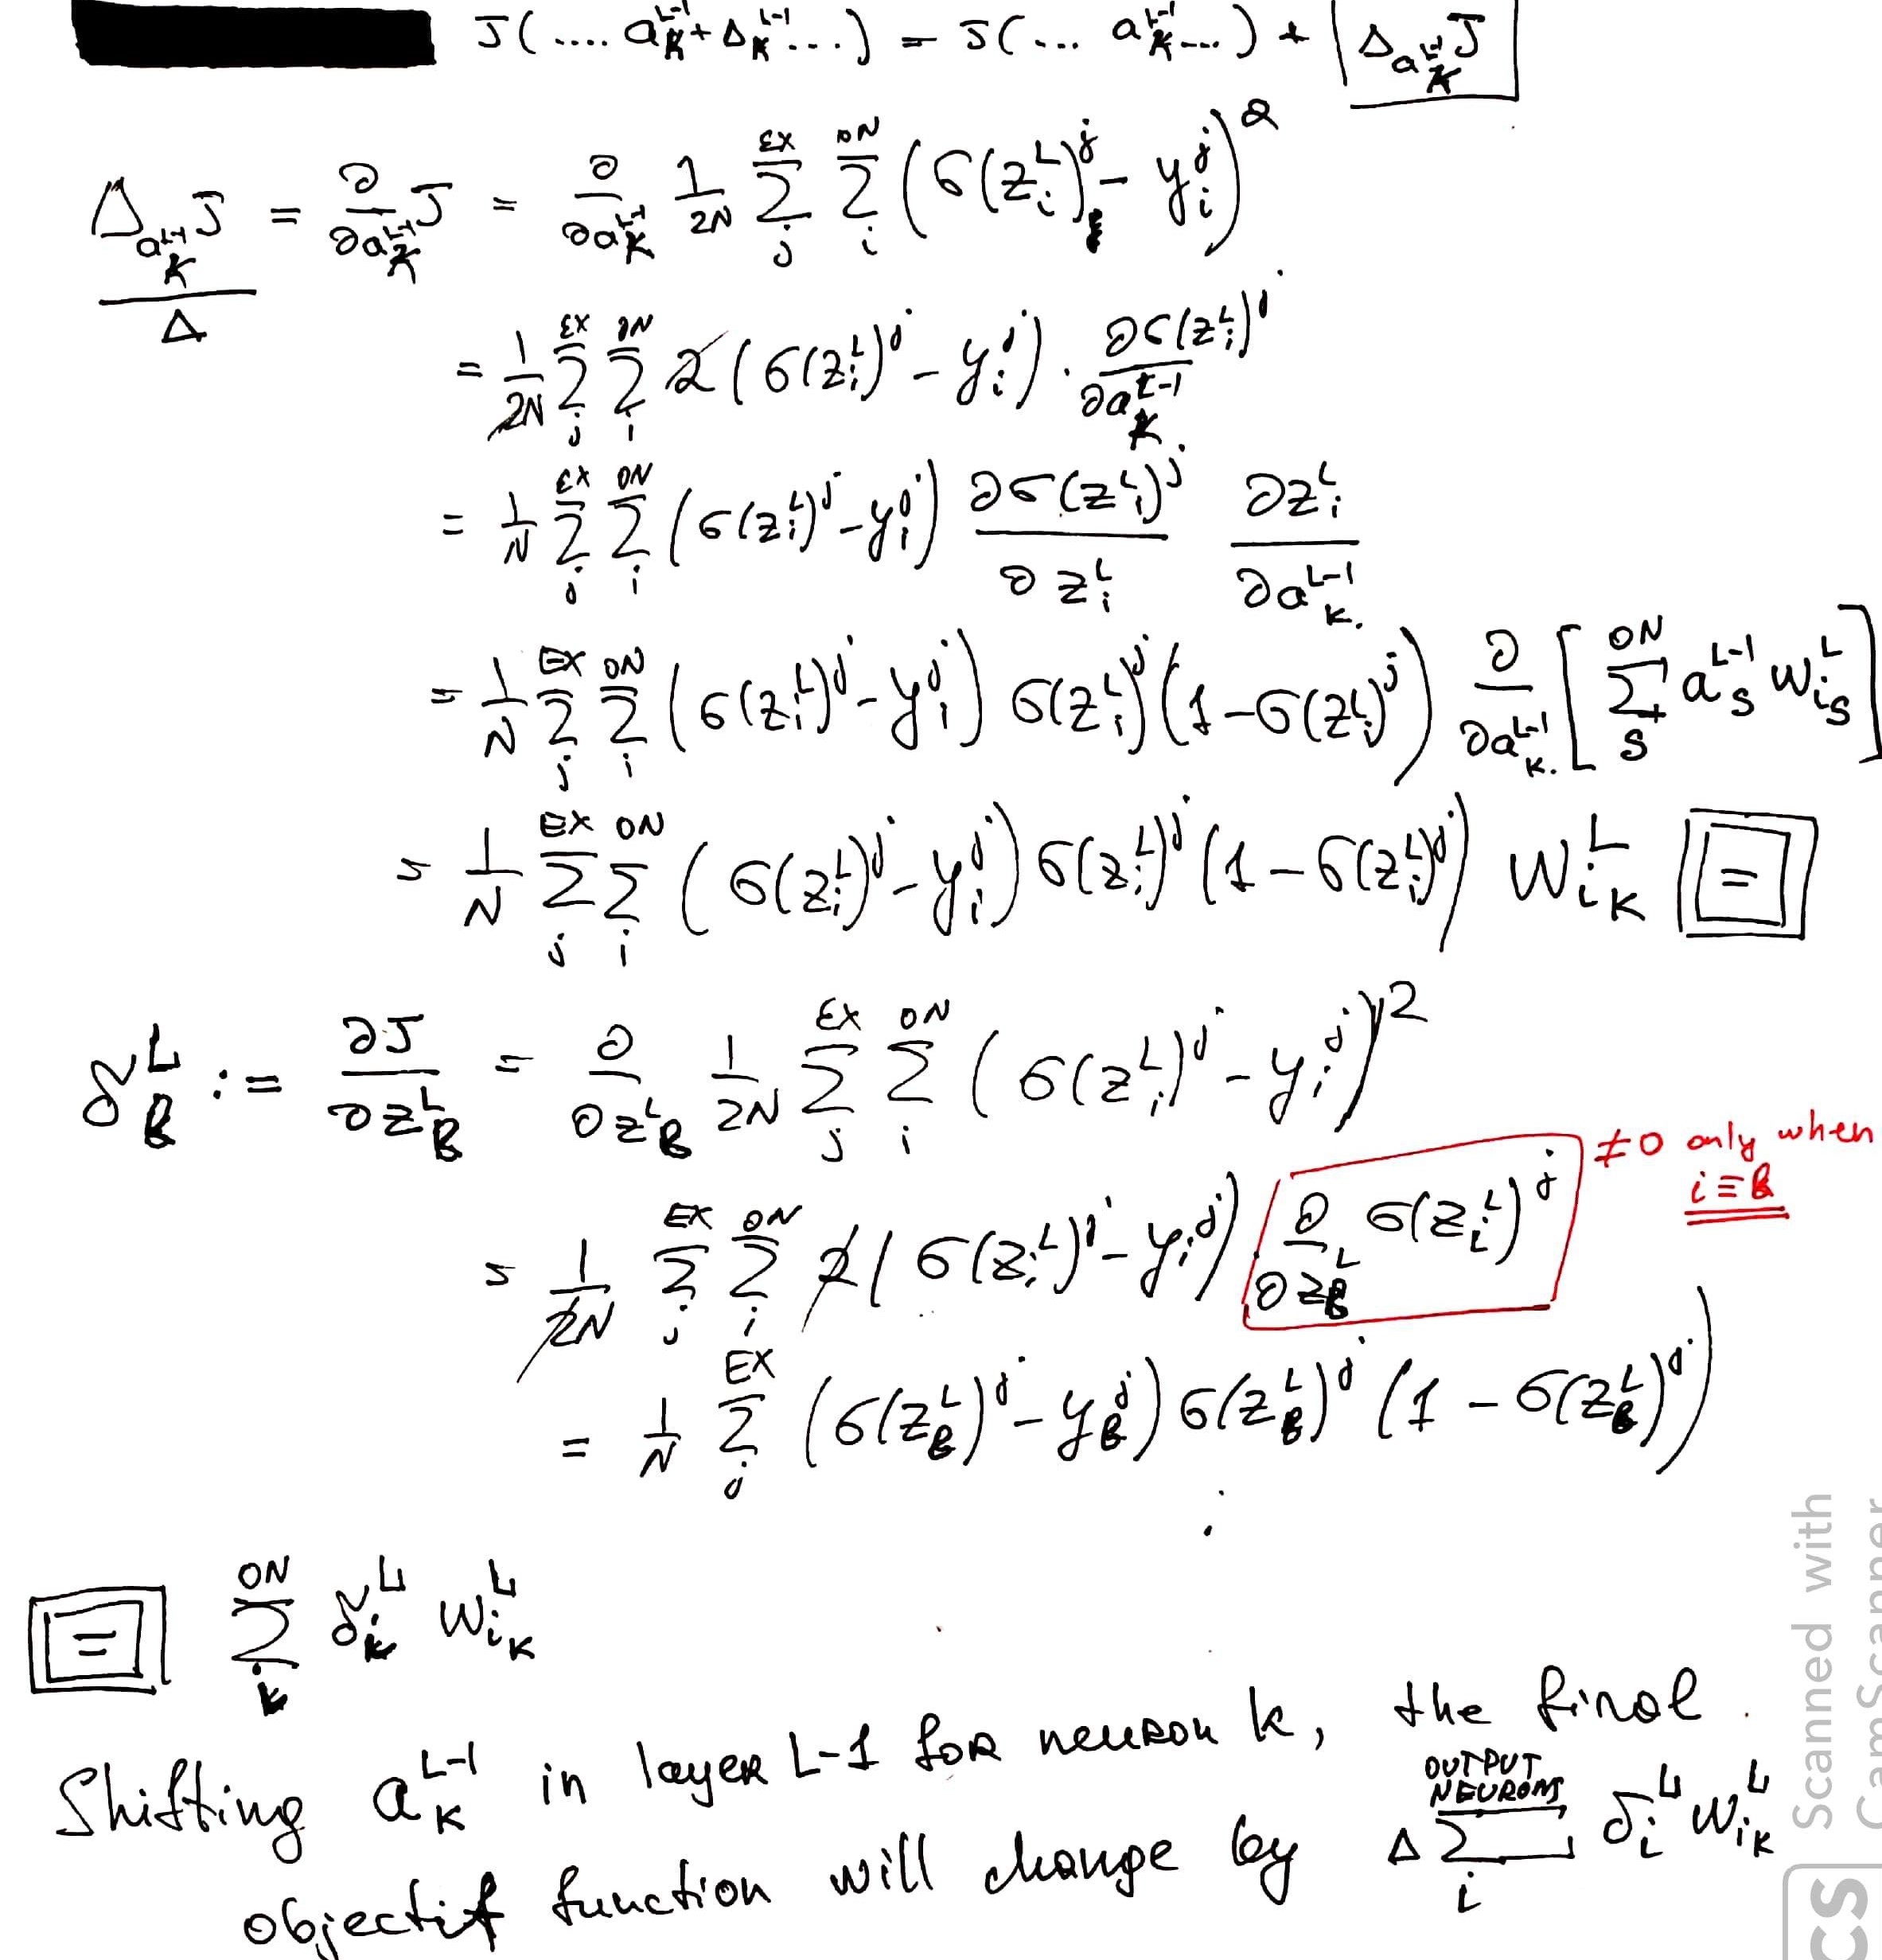 J(.... a_K^{L-1} + Δ_K^{L-1} ...) = J(... a_K^{L-1} ...) + Δ_{a_K^{L-1}} J
Δ_{a_K^{L-1}} J / Δ = ∂/∂a_K^{L-1} J = ∂/∂a_K^{L-1} 1/2N Σ_j^{EX} Σ_i^{ON} (σ(z_i^L)^j - y_i^j)^2
= 1/2N Σ_j^{EX} Σ_i^{ON} 2 (σ(z_i^L)^j - y_i^j) · ∂σ(z_i^L)^j / ∂a_K^{L-1}
= 1/N Σ_j^{EX} Σ_i^{ON} (σ(z_i^L)^j - y_i^j) ∂σ(z_i^L)^j / ∂z_i^L ∂z_i^L / ∂a_K^{L-1}
= 1/N Σ_j^{EX} Σ_i^{ON} (σ(z_i^L)^j - y_i^j) σ(z_i^L)^j (1 - σ(z_i^L)^j) ∂/∂a_K^{L-1} [Σ_s^{ON} a_s^{L-1} w_{is}^L]
= 1/N Σ_j^{EX} Σ_i^{ON} (σ(z_i^L)^j - y_i^j) σ(z_i^L)^j (1 - σ(z_i^L)^j) w_{iK}^L =
δ_B^L := ∂J/∂z_B^L = ∂/∂z_B^L 1/2N Σ_j^{EX} Σ_i^{ON} (σ(z_i^L)^j - y_i^j)^2
= 1/2N Σ_j^{EX} Σ_i^{ON} 2 (σ(z_i^L)^j - y_i^j) ∂/∂z_B^L σ(z_i^L)^j ≠0 only when
i≡B
= 1/N Σ_j^{EX} (σ(z_B^L)^j - y_B^j) σ(z_B^L)^j (1 - σ(z_B^L)^j)
= Σ_i^{ON} δ_i^L w_{iK}^L
Shifting a_K^{L-1} in layer L-1 for neuron k, the final
objectif function will change by Δ Σ_i^{OUTPUT NEURONS} δ_i^L w_{iK}^L
CS Scanned with
CamScanner